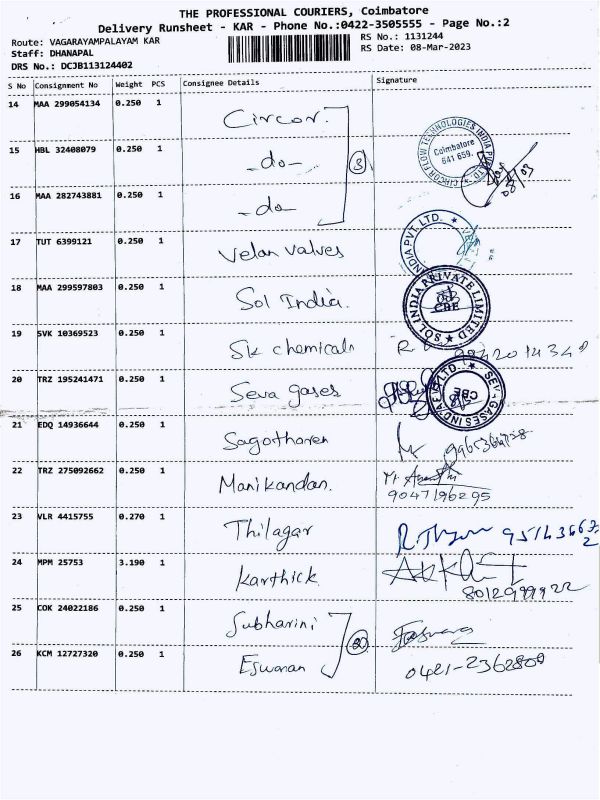 THE PROFESSIONAL COURIERS, Coimbatore
Delivery Runsheet - KAR - Phone No.:0422-3505555 - Page No.:2
Route: VAGARAYAMPALAYAM KAR
Staff: DHANAPAL
DRS No.: DCJB113124402
RS No.: 1131244
RS Date: 08-Mar-2023
S No Consignment No Weight PCS Consignee Details Signature
14 MAA 299054134 0.250 1 Circor.
CIRCOR FLOW TECHNOLOGIES INDIA PVT LTD Coimbatore 641 659.
15 HBL 32408079 0.250 1 -do- 3
08/03
16 MAA 282743881 0.250 1 -do-
17 TUT 6399121 0.250 1 Velan valves INDIA PVT. LTD.
18 MAA 299597803 0.250 1 Sol India. SOL INDIA PRIVATE LIMITED CBE
19 SVK 10369523 0.250 1 Sk chemicals
20 TRZ 195241471 0.250 1 Seva gases SEV-GASES INDIA PVT LTD. CBE
21 EDQ 14936644 0.250 1
22 TRZ 275092662 0.250 1 Manikandan.
9047196295
23 VLR 4415755 0.270 1 Thilagar
24 MPM 25753 3.190 1 Karthick
8012999922
25 COK 24022186 0.250 1 Subharini
26 KCM 12727320 0.250 1 Eswaran 0421-2362800